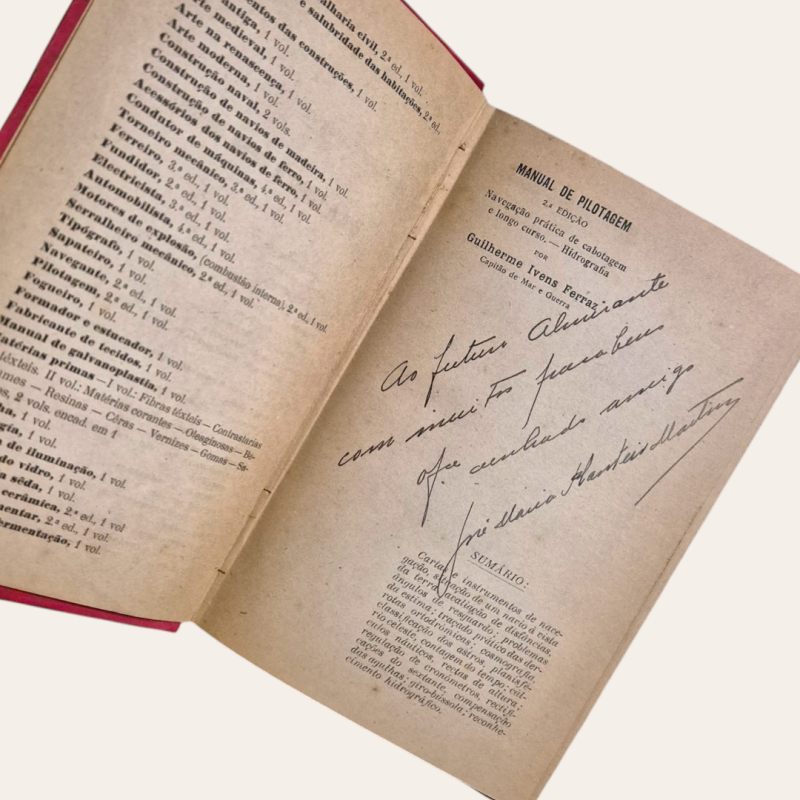 alharia civil, 2.ª ed., 1 vol.
entos das construções, 1 vol.
e salubridade das habitações, 2.ª ed.,
antiga, 1 vol.
rte medieval, 1 vol.
Arte na renascença, 1 vol.
Arte moderna, 1 vol.
Construção naval, 2 vols.
Construção de navios de madeira, 1 vol.
Construção de navios de ferro, 1 vol.
Acessórios dos navios de ferro, 1 vol.
Condutor de máquinas, 4.ª ed., 1 vol.
Torneiro mecânico, 3.ª ed., 1 vol.
Ferreiro, 3.ª ed., 1 vol.
Fundidor, 2.ª ed., 1 vol.
Electricista, 3.ª ed., 1 vol.
Automobilista, 4.ª ed., 1 vol.
Motores de explosão, (combustão interna), 2.ª ed., 1 vol.
Serralheiro mecânico, 2.ª ed., 1 vol.
Tipógrafo, 1 vol.
Sapateiro, 1 vol.
Navegante, 2.ª ed., 1 vol.
Pilotagem, 2.ª ed., 1 vol.
Fogueiro, 1 vol.
Formador e estucador, 1 vol.
Fabricante de tecidos, 1 vol.
Manual de galvanoplastia, 1 vol.
atérias primas—I vol.: Fibras têxteis — Contrastarias
têxteis. II vol.: Matérias corantes — Oleaginosas — Be-
umes — Resinas — Cêras — Vernizes — Gomas — Se-
es, 2 vols. encad. em 1
ha, 1 vol.
gia, 1 vol.
de iluminação, 1 vol.
do vidro, 1 vol.
a sêda, 1 vol.
cerâmica, 2.ª ed., 1 vol.
mentar, 2.ª ed., 1 vol.
ermentação, 1 vol.
MANUAL DE PILOTAGEM
2.ª EDIÇÃO
Navegação prática de cabotagem
e longo curso. — Hidrografia
POR
Guilherme Ivens Ferraz
Capitão de Mar e Guerra
Ao futuro Almirante
com muitos parabens
ofce cunhado amigo
José Maria Martins
SUMÁRIO:
Cartas e instrumentos de nave-
gação, situação de um navio à vista
da terra, avaliação de distâncias,
ângulos de resguardo; problemas
da estima; traçado prático das der-
rotas ortodrómicas; cosmografia,
classificação dos astros, planisfé-
rio celeste, contagem do tempo; cál-
culos náuticos, rectas de altura;
regulação de cronómetros, rectifi-
cações do sextante, compensação
das agulhas; giro-bússola; reconhe-
cimento hidrográfico.